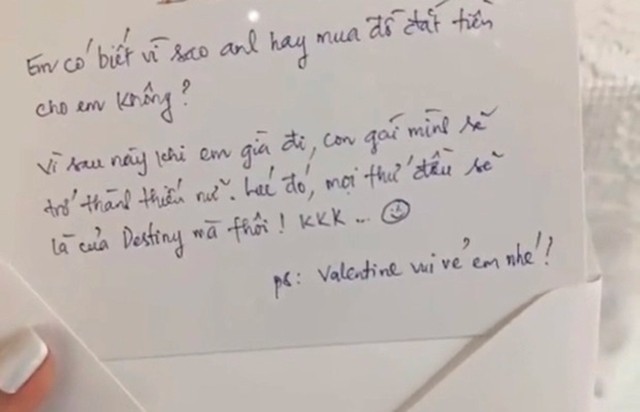 Em có biết vì sao anh hay mua đồ đắt tiền
cho em không?
Vì sau này khi em già đi, con gái mình sẽ
trở thành thiếu nữ. Lúc đó, mọi thứ đều sẽ
là của Destiny mà thôi! KKK... ☺
ps: Valentine vui vẻ em nhé!?